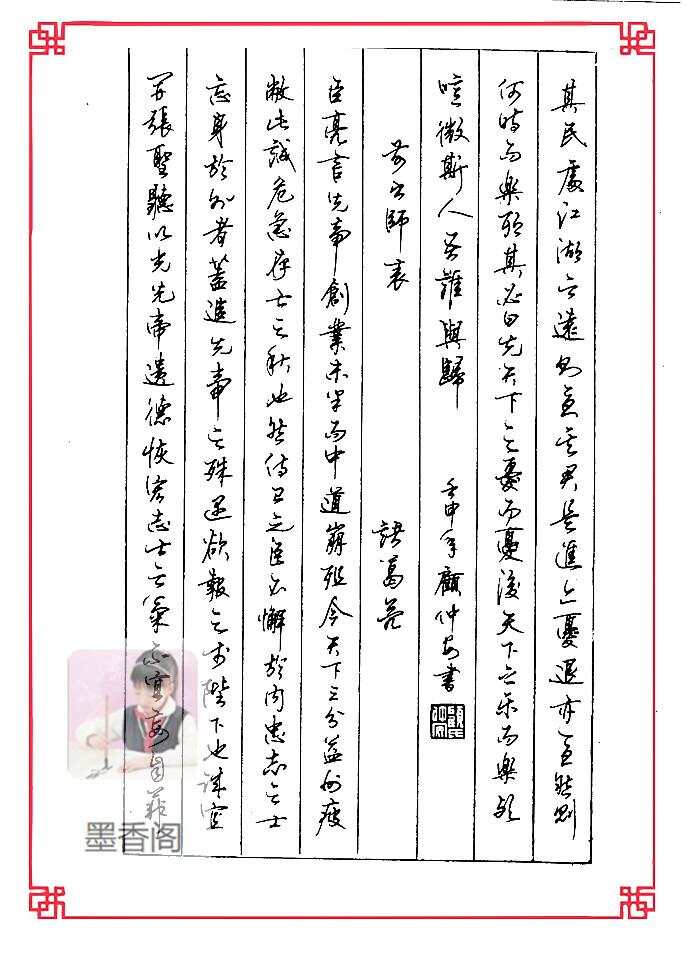 其民處江湖之遠則憂其君是進亦憂退亦憂然則
何時而樂耶其必曰先天下之憂而憂後天下之樂而樂歟
噫微斯人吾誰與歸 壬申年顧仲安書
前出師表
諸葛亮
臣亮言先帝創業未半而中道崩殂今天下三分益州疲
敝此誠危急存亡之秋也然侍卫之臣不懈於内忠志之士
忘身於外者蓋追先帝之殊遇欲報之於陛下也誠宜
開張聖聽以光先帝遺德恢宏志士之氣不宜妄自菲薄
墨香阁